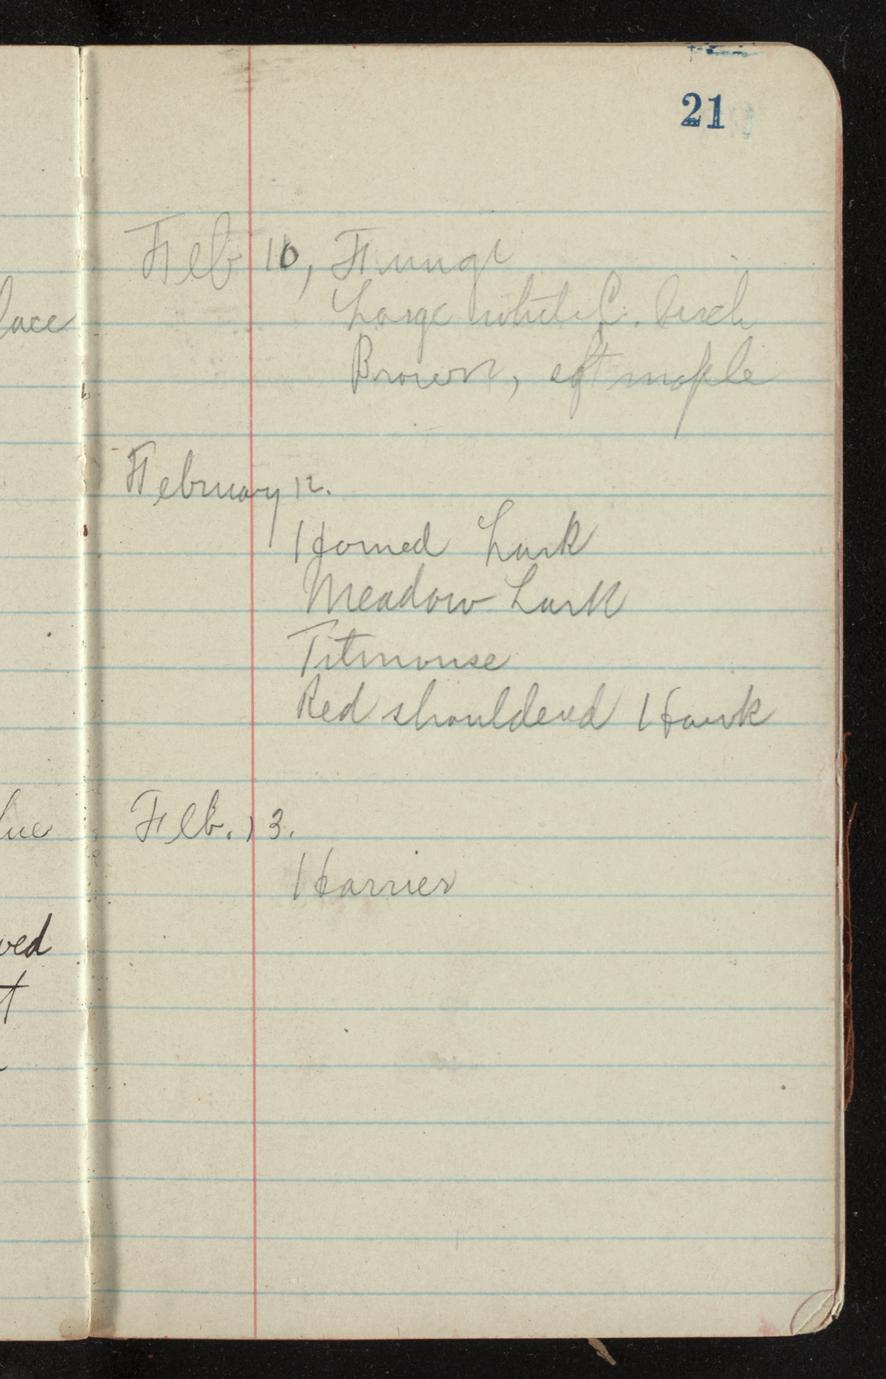 21
Feb 10, Fungi
Large white C. Birch
Brown, soft maple
February 12.
Horned Lark
Meadow Lark
Titmouse
Red shouldered Hawk
Feb. 13.
Harrier